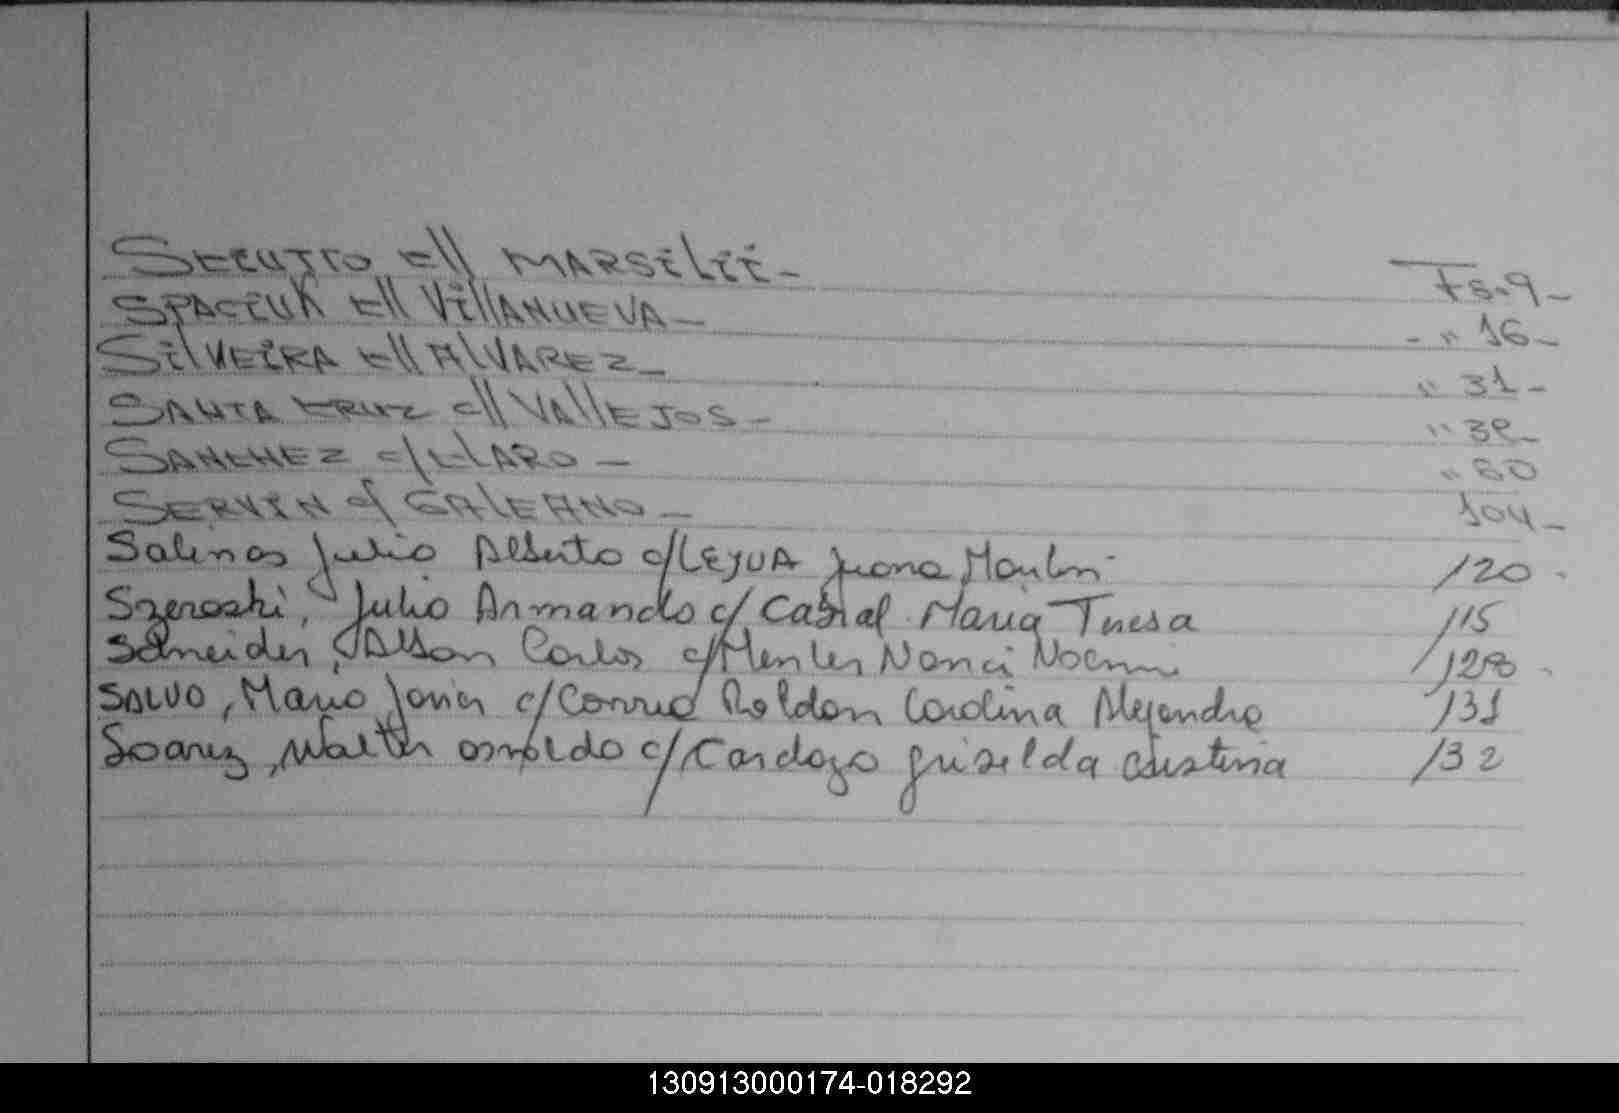 SECUTTO C// MARSILII - Fs. 9 -
SPACIUK C// VillANUEVA - - " 16 -
SilVEIRA C// AlVAREZ - " 31 -
SANTA CRUZ C// VAllEJOS - " 39 -
SANCHEZ c/ ClARO - " 60
SERVIN c/ GAlEANO - 104 -
Salinas Julio Alberto c/ LEJUA Juana 120
Julio Armando c/ Cabral Maria Teresa 115
Schneider, Carlos c/ Nanci Noemi 128
SALVO, Mario Javier c/ Roldan Carolina Alejandra 131
Soarez, Walter osvaldo c/ Cardozo griselda cristina 132
130913000174-018292